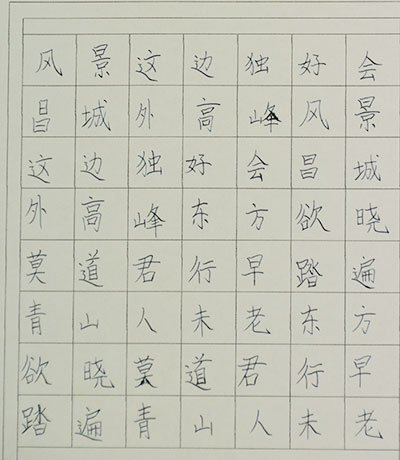 风景这边独好会
昌城外高峰风景
这边独好会昌城
外高峰东方欲晓
莫道君行早踏遍
青山人未老东方
欲晓莫道君行早
踏遍青山人未老